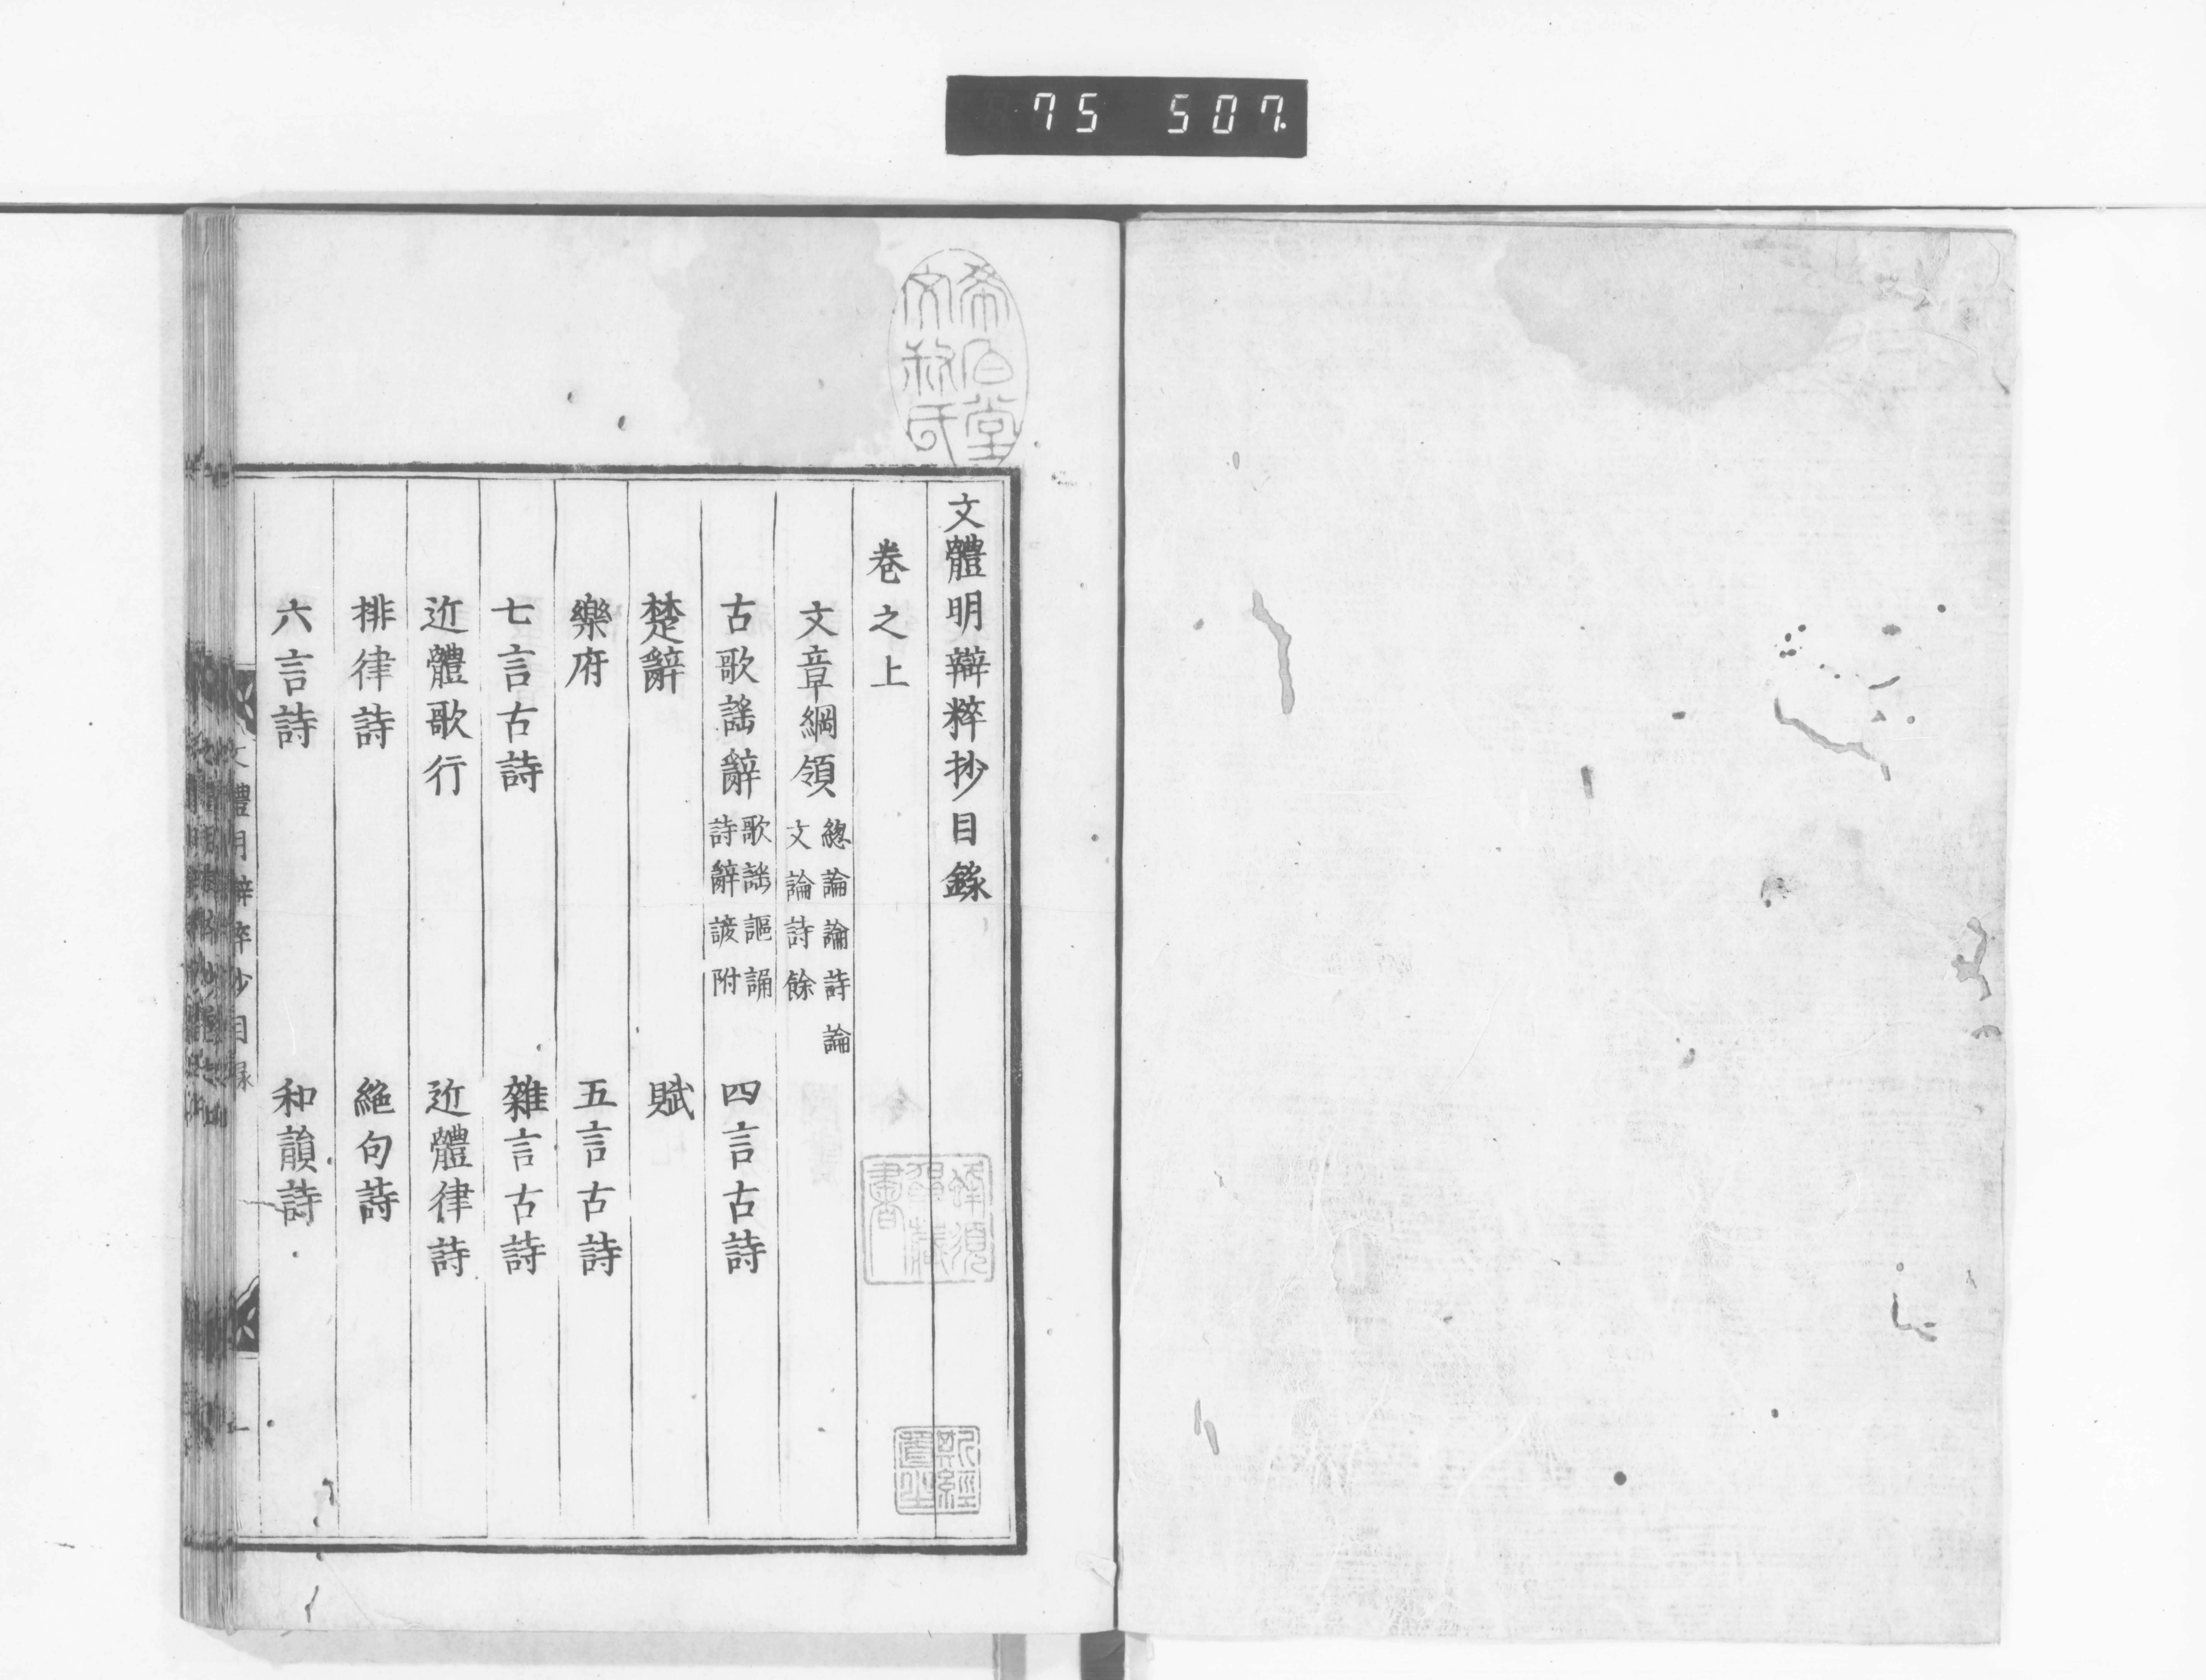 75 507
文體明辯粹抄目錄
卷之上
文章綱領 總論論詩論
文論詩餘
古歌謠辭 歌謠謳誦
詩辭諺附 四言古詩
楚辭 賦
樂府 五言古詩
七言古詩 雜言古詩
近體歌行 近體律詩
排律詩 絕句詩
六言詩 和韻詩
文體明辯粹抄目錄 一
蜂須賀藏書